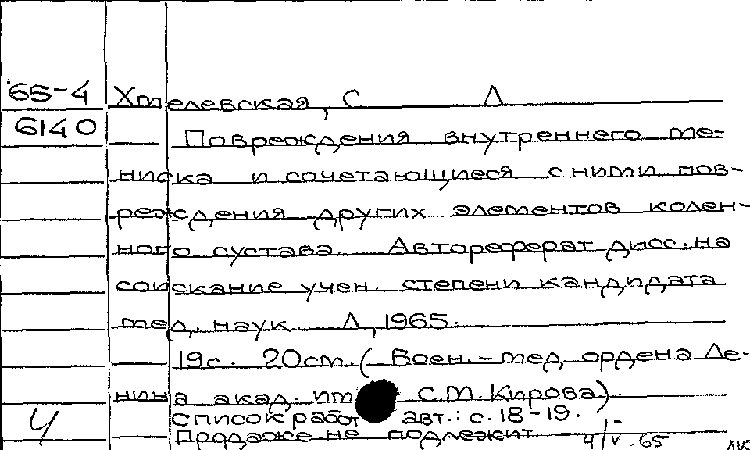 65-4 Хмелевская, С Л
6140 Повреждения внутреннего ме-
ниска и сочетающиеся с ними пов-
реждения других элементов колен-
ного сустава. Автореферат дисс. на
соискание учен. степени кандидата
мед. наук. Л, 1965.
19с. 20см. (Воен.-мед. ордена Ле-
нина акад. им С.М. Кирова)
Список работ авт.: с. 18-19.
Продаже не подлежит 4/V-65